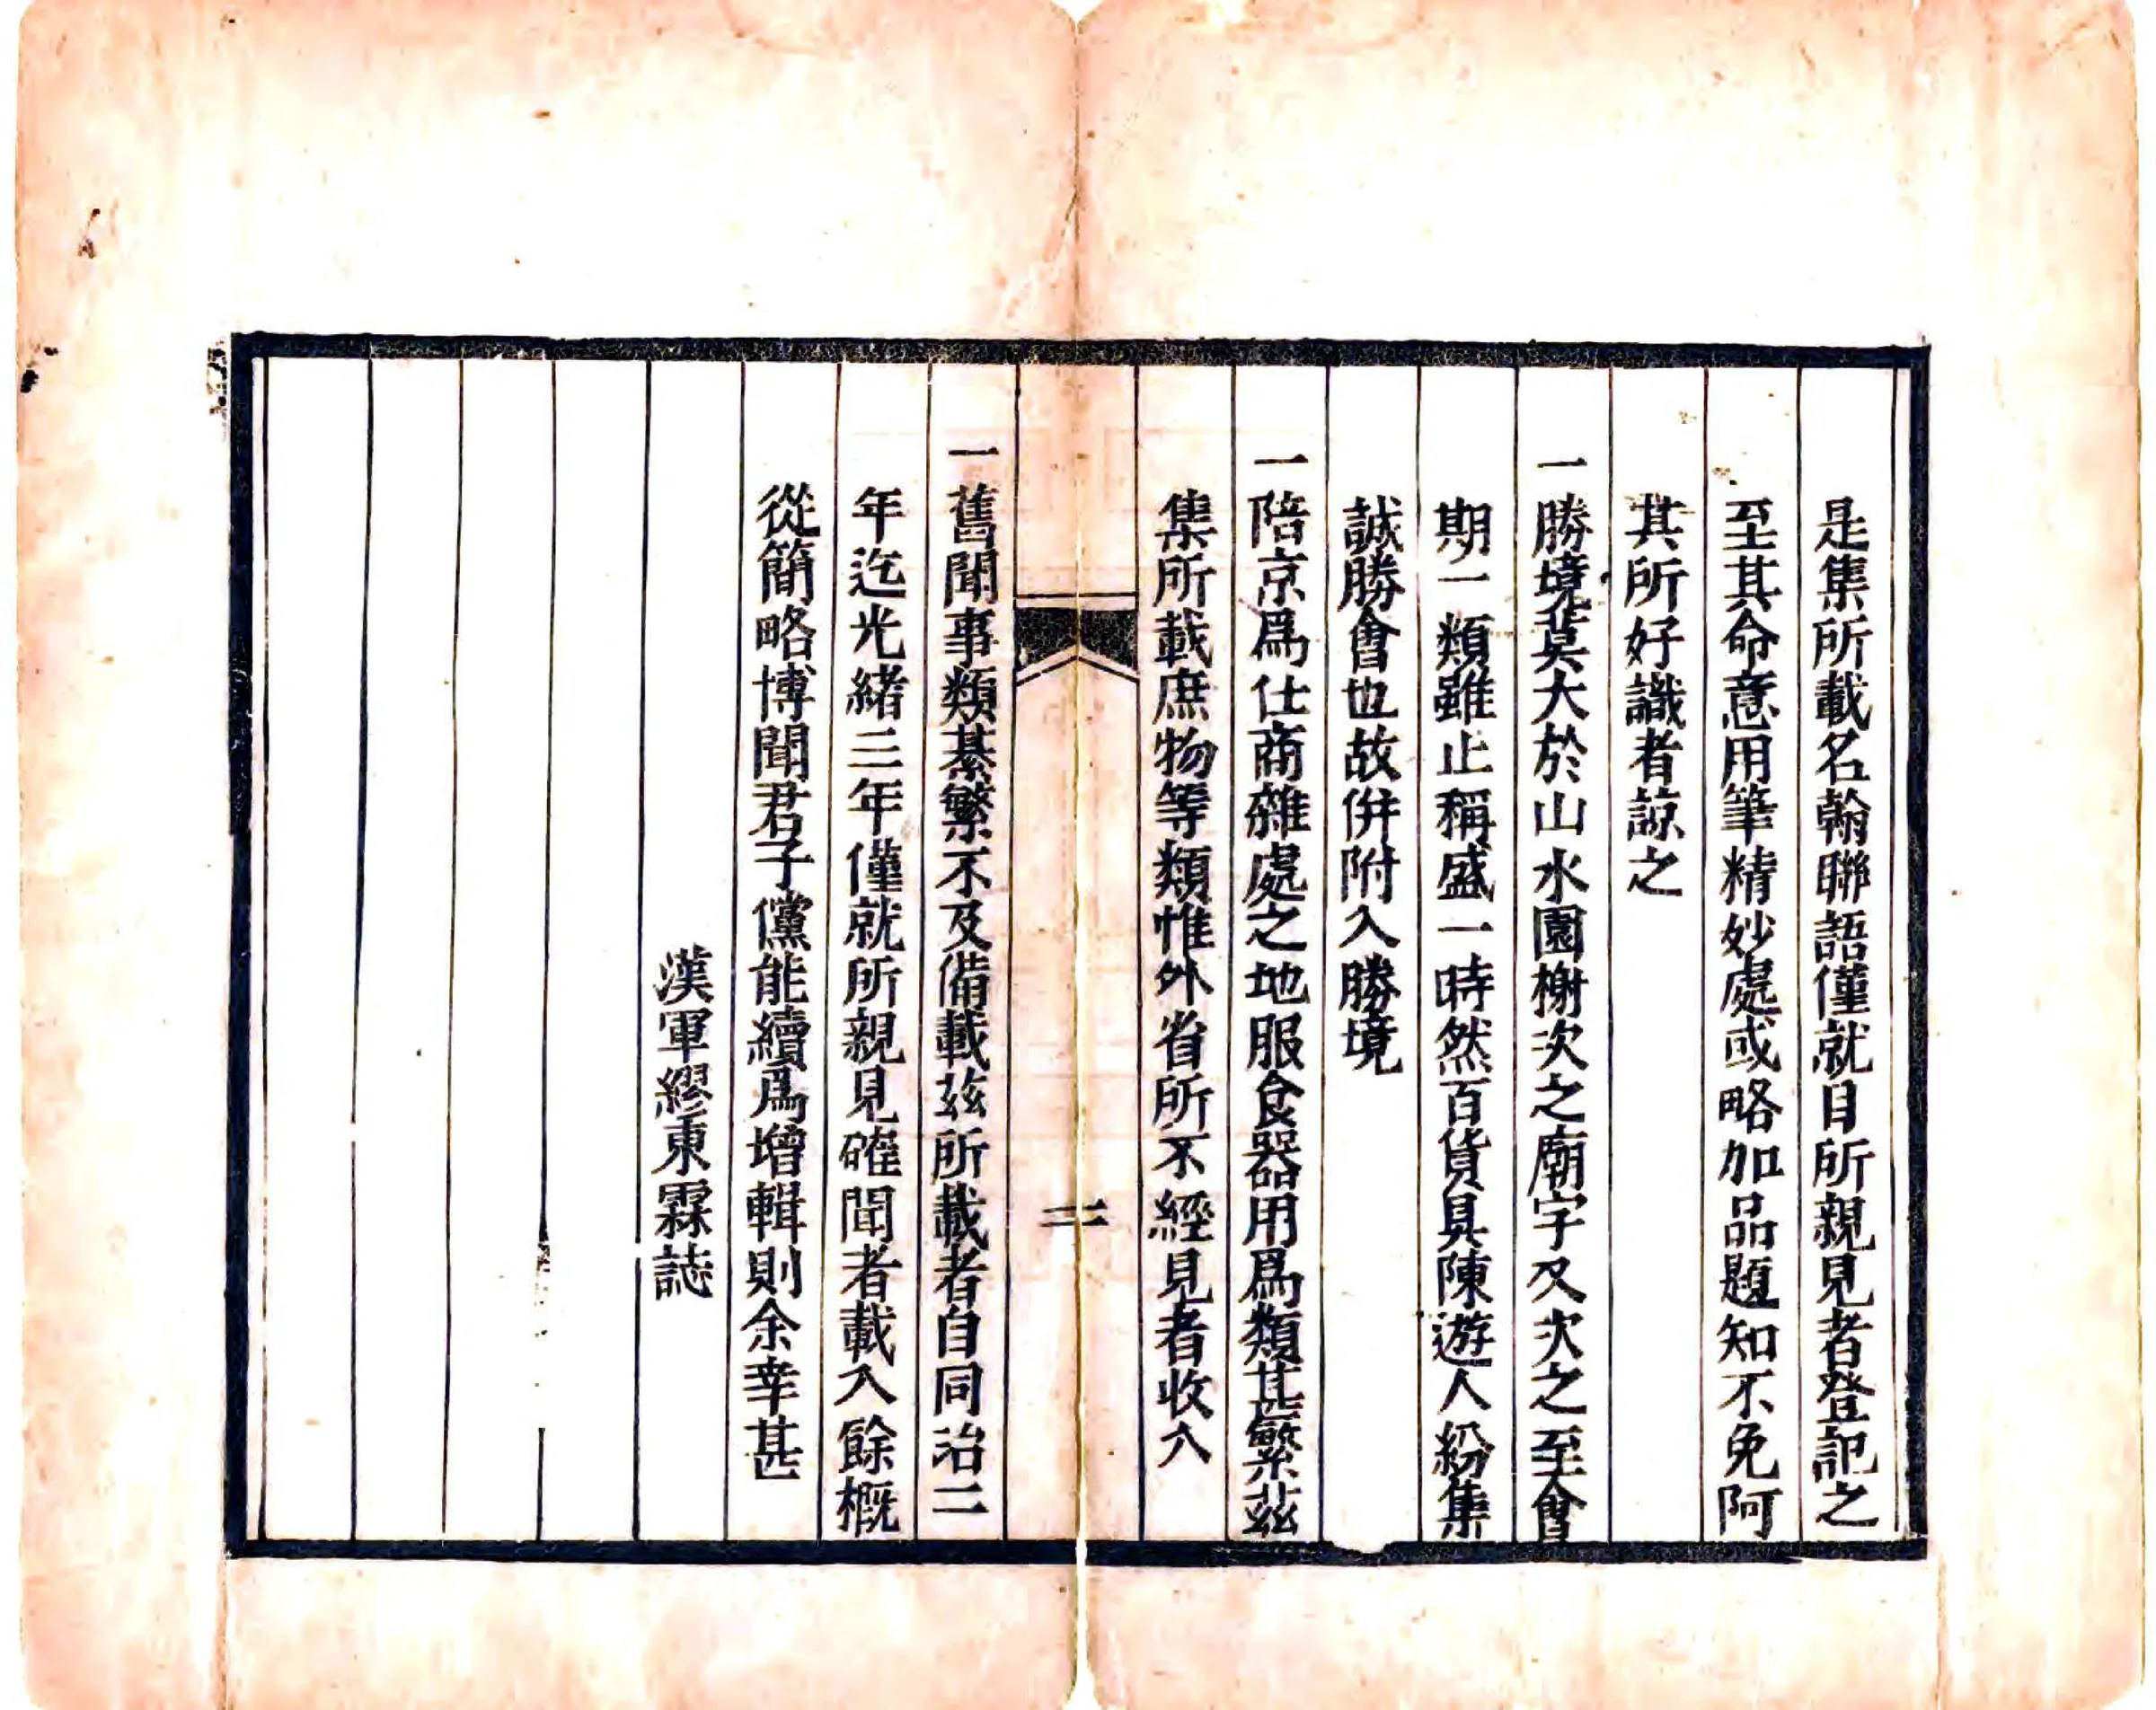 是集所載名翰聯語僅就目所親見者登記之
至其命意用筆精妙處或略加品題知不免阿
其所好識者諒之
一勝境莫大於山水園榭次之廟宇又次之至會
期一類雖止稱盛一時然百貨具陳遊人紛集
誠勝會也故併附入勝境
一陪京爲仕商雜處之地服食器用爲類甚繁茲
集所載庶物等類惟外省所不經見者收入
二
一舊聞事類綦繁不及備載茲所載者自同治二
年迄光緒三年僅就所親見確聞者載入餘概
從簡略博聞君子儻能續爲增輯則余幸甚
漢軍繆東霖誌